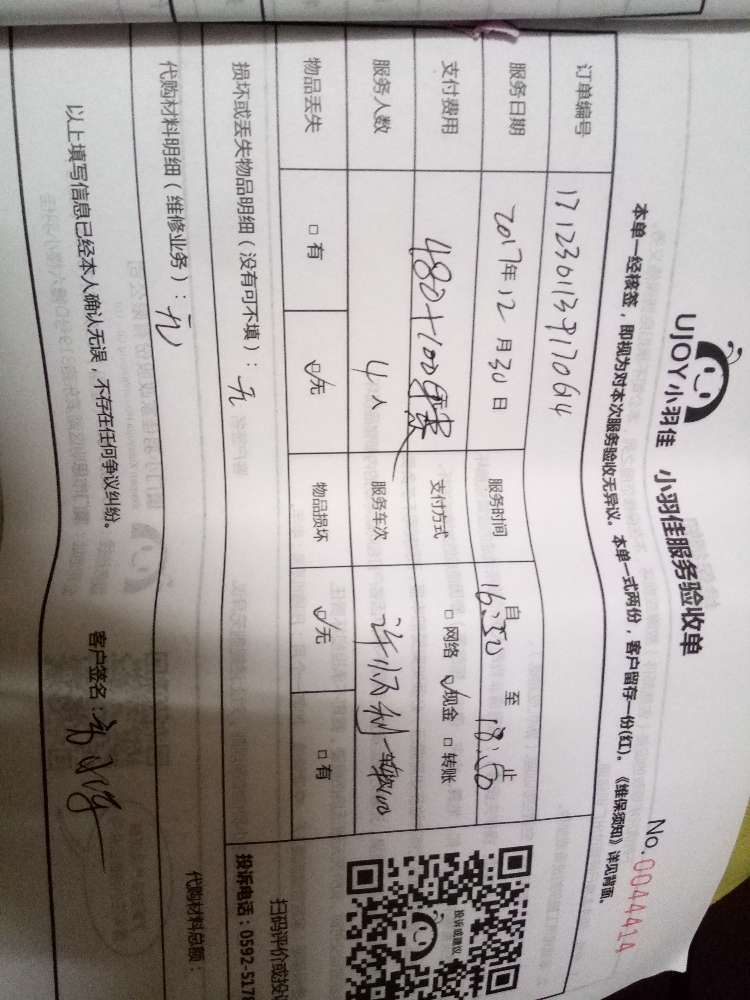 UJOY小羽佳 小羽佳服务验收单
No.0044414
本单一经核签，即视为对本次服务验收无异议。本单一式两份，客户留存一份(红)。《维保须知》详见背面。
订单编号 171230113917064
服务日期 2017年12月30日 服务时间 自16:50至18:50止
支付费用 480+100 支付方式 □网络 ☑现金 □转账
服务人数 4人 服务车次
物品丢失 □有 ☑无 物品损坏 ☑无 □有
投诉或建议
损坏或丢失物品明细（没有可不填）：无
扫码评价或投
投诉电话：0592-5178
代购材料明细（维修业务）：无
代购材料总额：
以上填写信息已经本人确认无误，不存在任何争议纠纷。
客户签名：